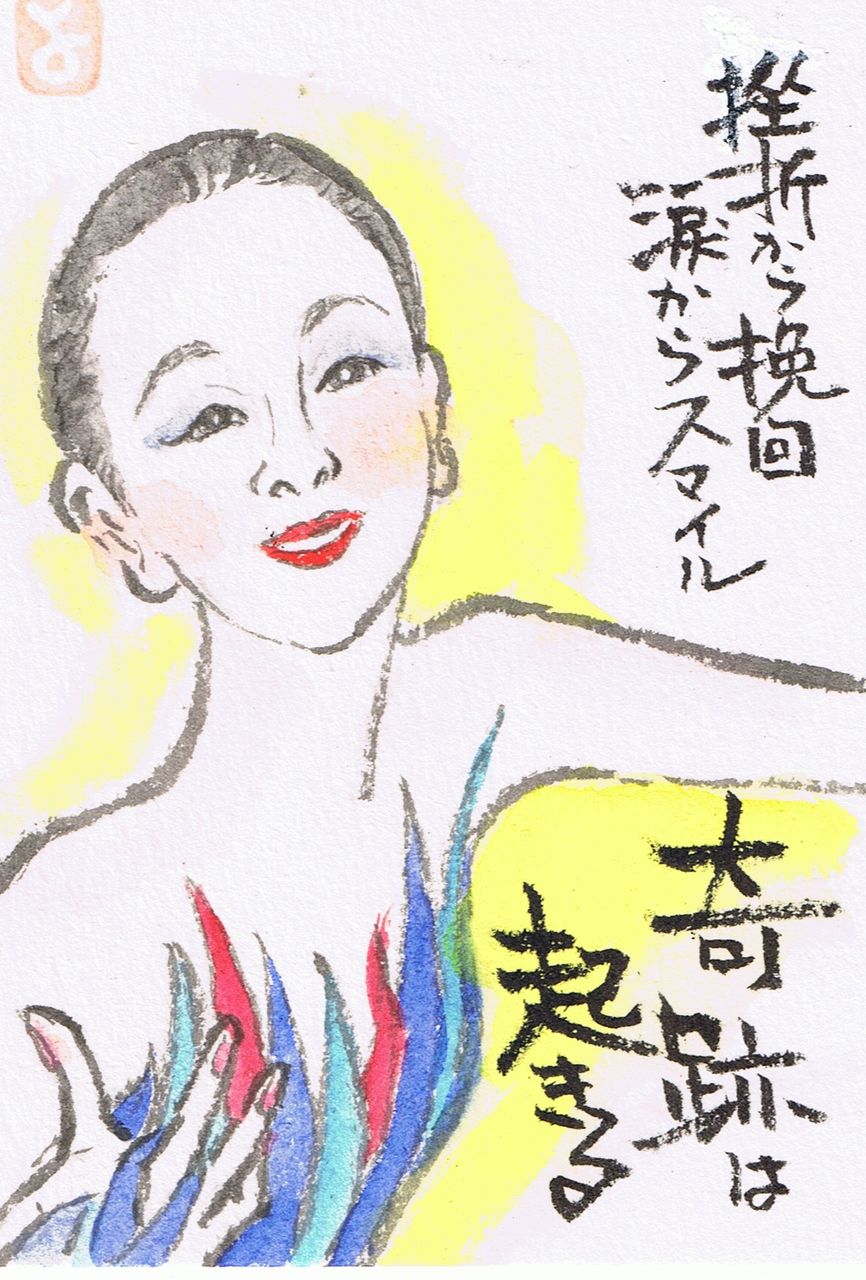 挫折から挽回
涙からスマイル
奇跡は
起きる